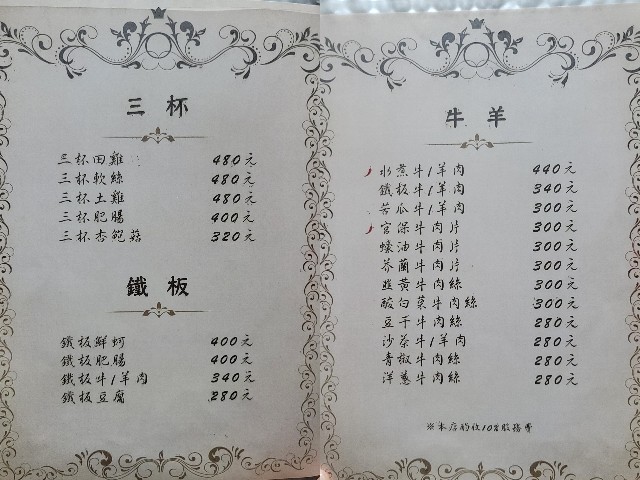 三杯
三杯田雞 480元
三杯軟絲 480元
三杯土雞 480元
三杯肥腸 400元
三杯杏鮑菇 320元
鐵板
鐵板鮮蚵 400元
鐵板肥腸 400元
鐵板牛/羊肉 340元
鐵板豆腐 280元
牛羊
水煮牛/羊肉 440元
鐵板牛/羊肉 340元
苦瓜牛/羊肉 300元
宮保牛肉片 300元
蠔油牛肉片 300元
芥蘭牛肉片 300元
韭黃牛肉絲 300元
酸白菜牛肉絲 300元
豆干牛肉絲 280元
沙茶牛/羊肉 280元
青椒牛肉絲 280元
洋蔥牛肉絲 280元
※本店酌收10%服務費